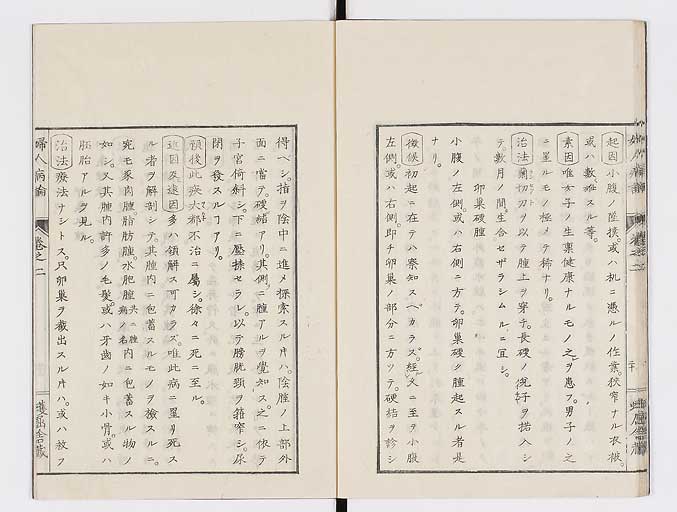 起因 小腹ノ墜撲。或ハ机ニ憑ルノ作業。狹窄ナル衣被。
或ハ數娩スル等。
素因 唯女子ノ生稟健康ナルモノ之ヲ患フ。男子ノ之
ニ罹ルモノ極メテ稀ナリ。
治法 刀ヲ以テ腫上ヲ穿チ。長硬ノ 子ヲ揷入シ
テ。數月ノ間。生合セザラシムルニ宜シ。
卵巣硬腫
小腹ノ左側。或ハ右側ニ方テ。卵巣硬ク腫起スル者是
ナリ。
徴候 初起ニ在テハ察知スベカラズ。經久ニ至ヲ小腹
左側。或ハ右側。即チ卵巣ノ部分ニ方ツテ。硬結ヲ診シ
得ベシ。指ヲ陰中ニ進メ探索スル片ハ。陰腟ノ上部外
面ニ當テ。硬結アリ。其側ニ腫アルヲ覺知ス。之ニ依テ
子宮倚斜シ。下ニ壓搡セラレ。以テ膀胱頸ヲ箝窄シ。尿
閉ヲ發スルヿアリ。
預後 此疾大都不治ニ屬シ。徐々ニ死ニ至ル。
近因及遠因 多ハ領解ス可カラズ。唯此病ニ罹リ死ス
ル者ヲ解剖シテ。其腫内ニ包蓄スルモノヲ檢スルニ。
宛モ豕肉腫。脂肪腫。水胞腫 共ニ腫病ノ名 内ニ包蓄スル物ノ
如シ。又其腫内許多ノ毛髮。或ハ牙齒ノ如キ小骨。或ハ
胚胎アルヲ見ル。
治法 療法ナシトス。只卵巣ヲ截出スル片ハ。或ハ救フ
婦人病論
卷之二